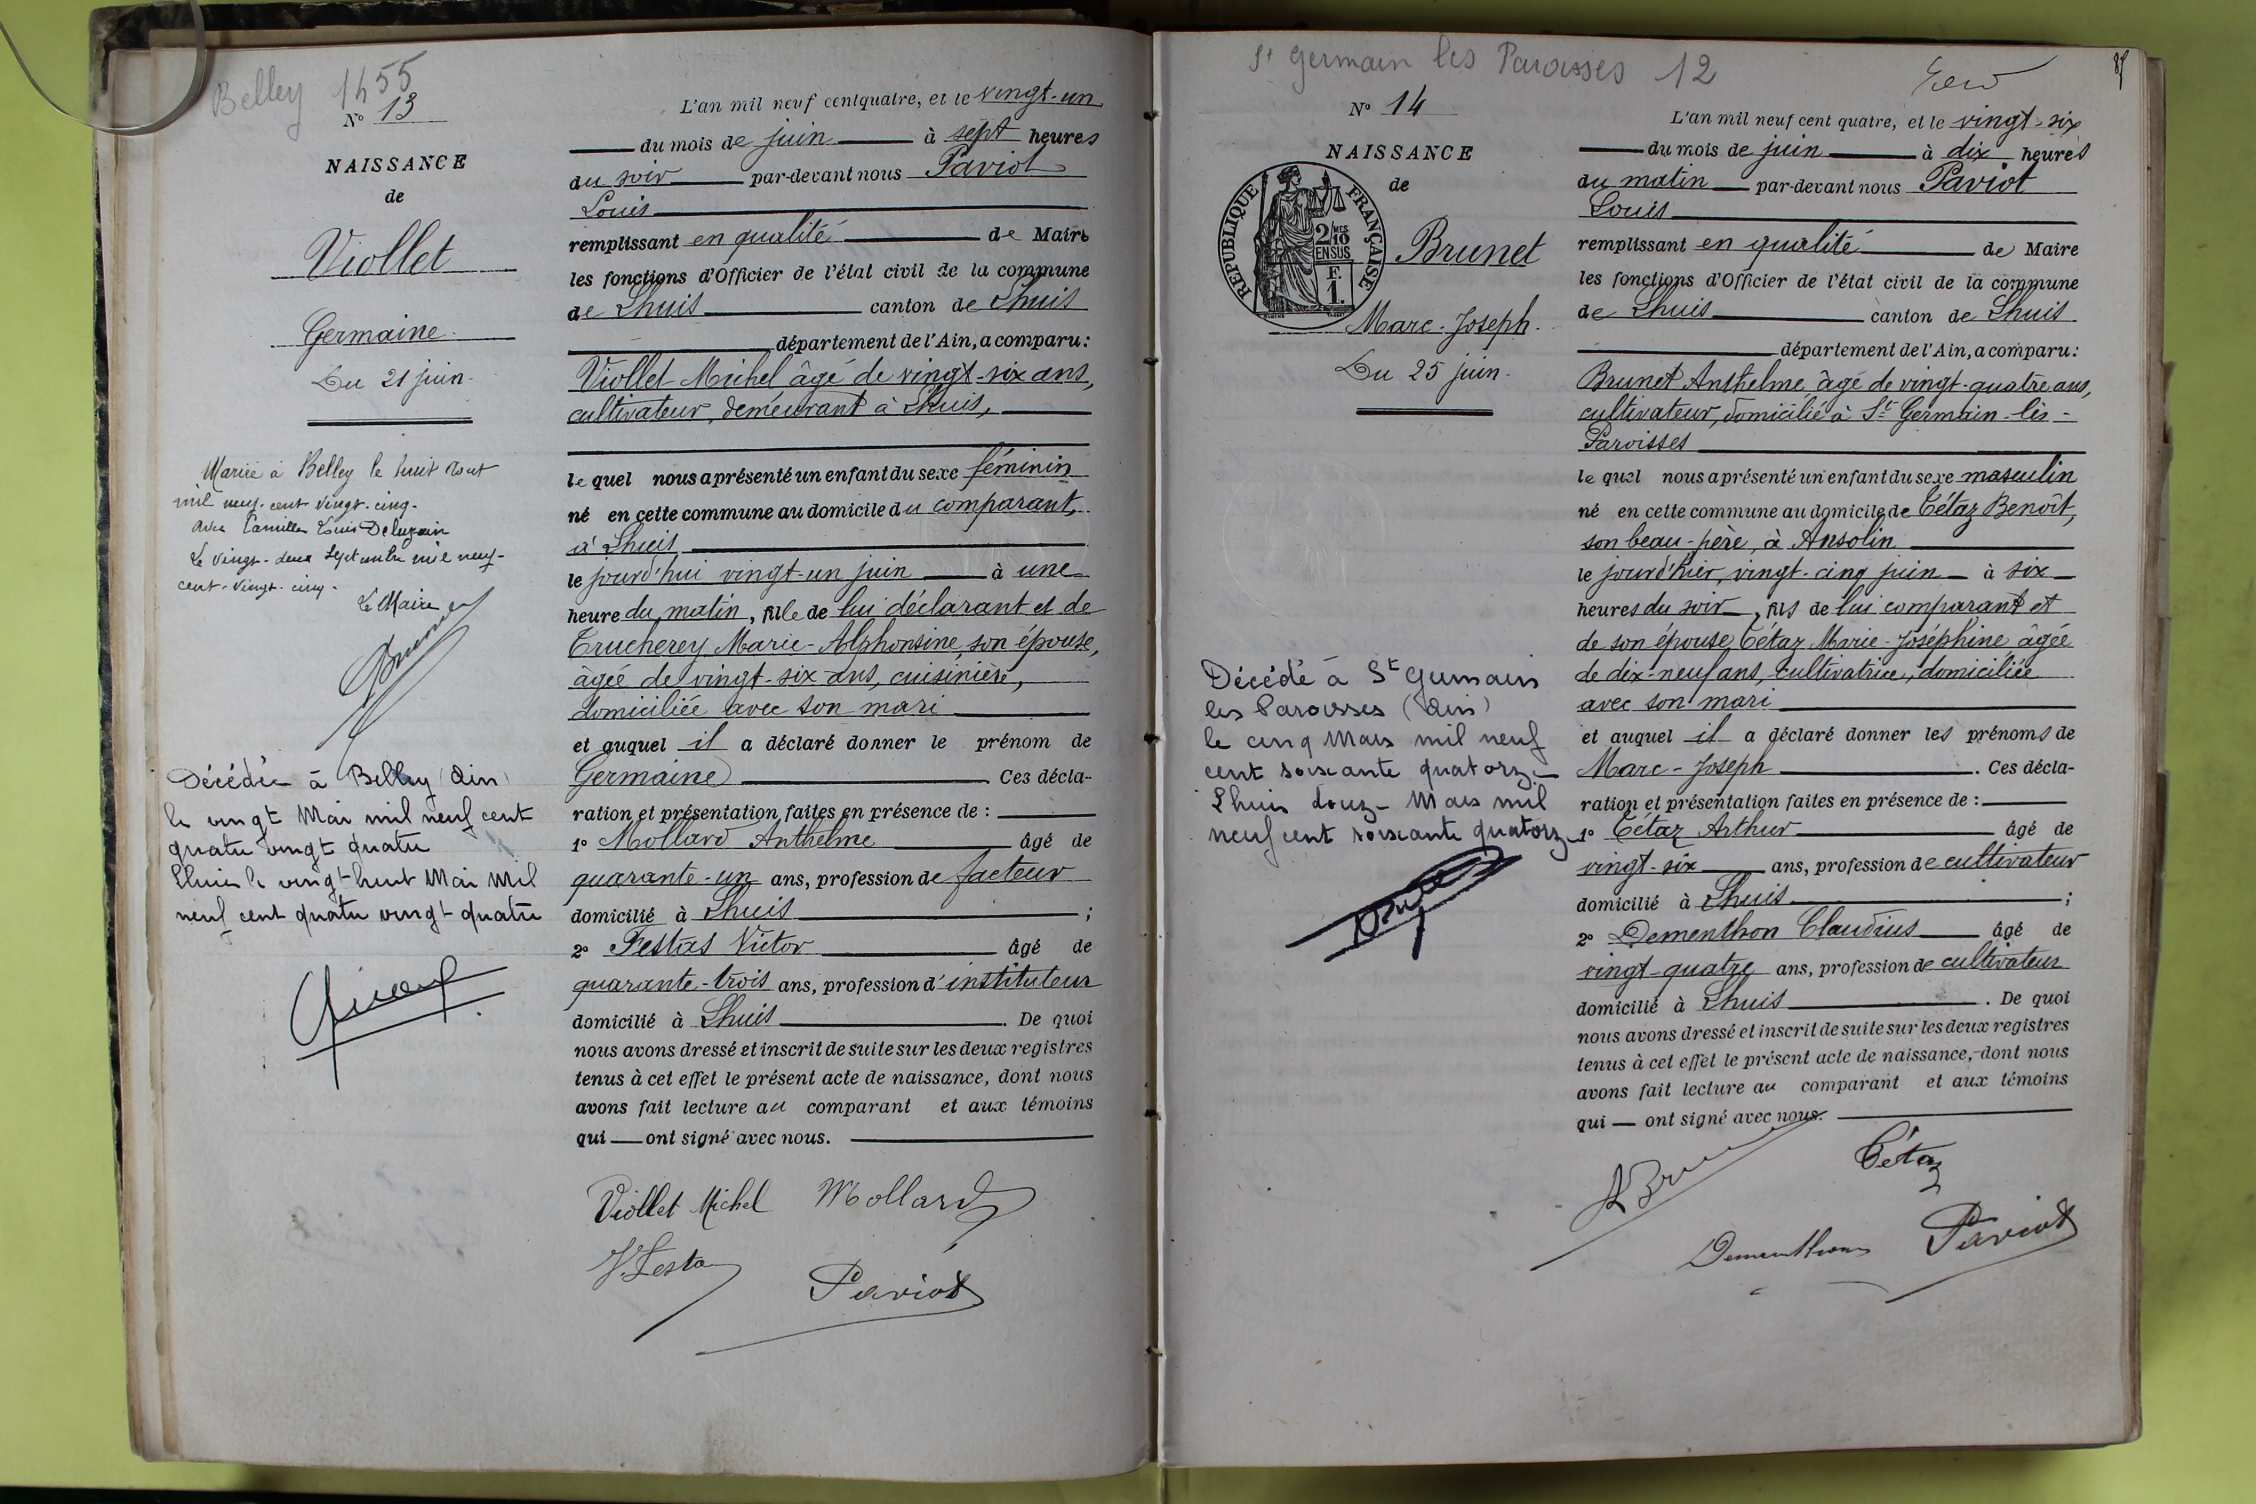 Belley 1455
N° 13
NAISSANCE
de
Viollet
Germaine.
Du 21 juin.
Mariée à Belley le huit Aout
mil neuf. cent vingt. cinq.
avec Camille Louis
Le vingt. deux Septembre mil neuf-
cent. vingt. cinq.
Le Maire
Décédée à Belley (Ain)
le vingt Mai mil neuf cent
quatre vingt quatre
Lhuis le vingt huit Mai mil
neuf cent quatre vingt quatre
L'an mil neuf cent quatre, et le vingt-un
du mois de juin à sept heures
du soir par-devant nous Paviot
Louis
remplissant en qualité de Maire
les fonctions d'Officier de l'état civil de la commune
de Lhuis canton de Lhuis
département de l'Ain, a comparu:
Viollet Michel âgé de vingt-six ans,
cultivateur, demeurant à Lhuis,
le quel nous a présenté un enfant du sexe féminin
né en cette commune au domicile du comparant,
à Lhuis
le jourd'hui vingt-un juin à une
heure du matin, fille de lui déclarant et de
Trucherey Marie-Alphonsine, son épouse,
âgée de vingt-six ans, cuisinière,
domiciliée avec son mari
et auquel il a déclaré donner le prénom de
Germaine Ces décla-
ration et présentation faites en présence de:
1° Mollard Anthelme âgé de
quarante-un ans, profession de facteur
domicilié à Lhuis ;
2° Festas Victor âgé de
quarante-trois ans, profession d'instituteur
domicilié à Lhuis. De quoi
nous avons dressé et inscrit de suite sur les deux registres
tenus à cet effet le présent acte de naissance, dont nous
avons fait lecture au comparant et aux témoins
qui — ont signé avec nous.
Viollet Michel Mollard
V. Festas
Paviot
St Germain les Paroisses 12
N° 14
NAISSANCE
de
REPUBLIQUE FRANÇAISE
2/MES
10
EN SUS
F.
1.
Brunet
Marc-Joseph.
Du 25 juin.
Décédé à St Germain
les Paroisses (Ain)
le cinq Mars mil neuf
cent soixante quatorze
Lhuis douze Mars mil
neuf cent soixante quatorze
L'an mil neuf cent quatre, et le vingt-six
du mois de juin à dix heures
du matin par-devant nous Paviot
Louis
remplissant en qualité de Maire
les fonctions d'Officier de l'état civil de la commune
de Lhuis canton de Lhuis
département de l'Ain, a comparu:
Brunet Anthelme, âgé de vingt-quatre ans,
cultivateur, domicilié à St Germain-lès-
Paroisses
le quel nous a présenté un enfant du sexe masculin
né en cette commune au domicile de Tétaz Benoît,
son beau-père, à Ansolin
le jourd'hier, vingt-cinq juin à six
heures du soir, fils de lui comparant et
de son épouse Tétaz Marie-Joséphine, âgée
de dix-neuf ans, cultivatrice, domiciliée
avec son mari
et auquel il a déclaré donner les prénoms de
Marc-Joseph. Ces décla-
ration et présentation faites en présence de:
1° Tétaz Arthur âgé de
vingt-six ans, profession de cultivateur
domicilié à Lhuis ;
2° Dementhon Claudius âgé de
vingt-quatre ans, profession de cultivateur
domicilié à Lhuis. De quoi
nous avons dressé et inscrit de suite sur les deux registres
tenus à cet effet le présent acte de naissance, dont nous
avons fait lecture au comparant et aux témoins
qui — ont signé avec nous.
Tétaz
Dementhon Paviot